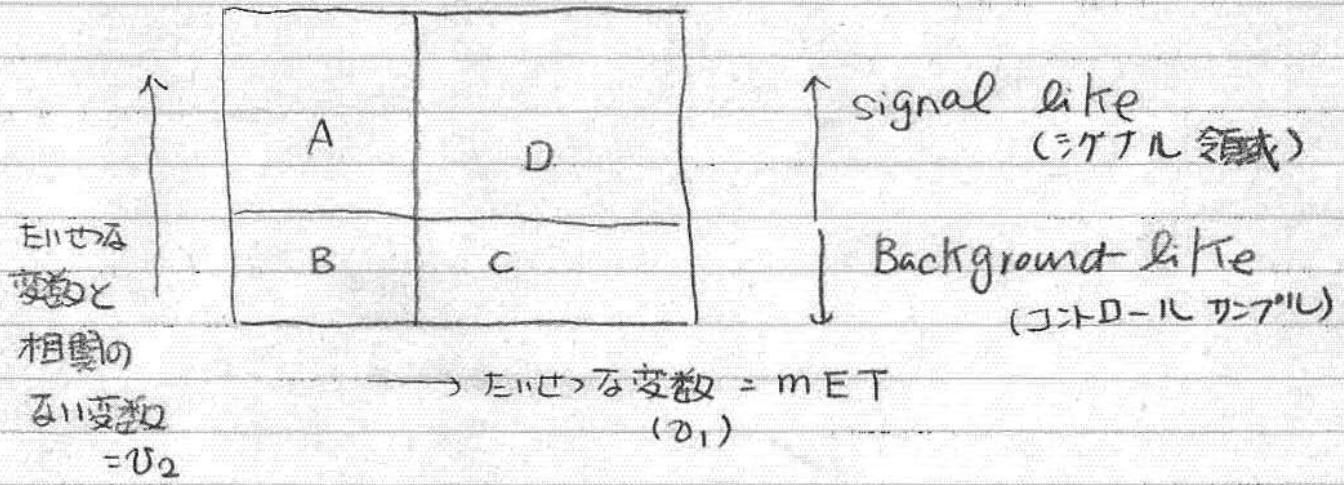 A
D
B
C
signal like
(シグナル 領域)
Background like
(コントロール サンプル)
たいせつな
変数と
相関の
ない変数
=v2
→ たいせつな変数 = mET
(v1)